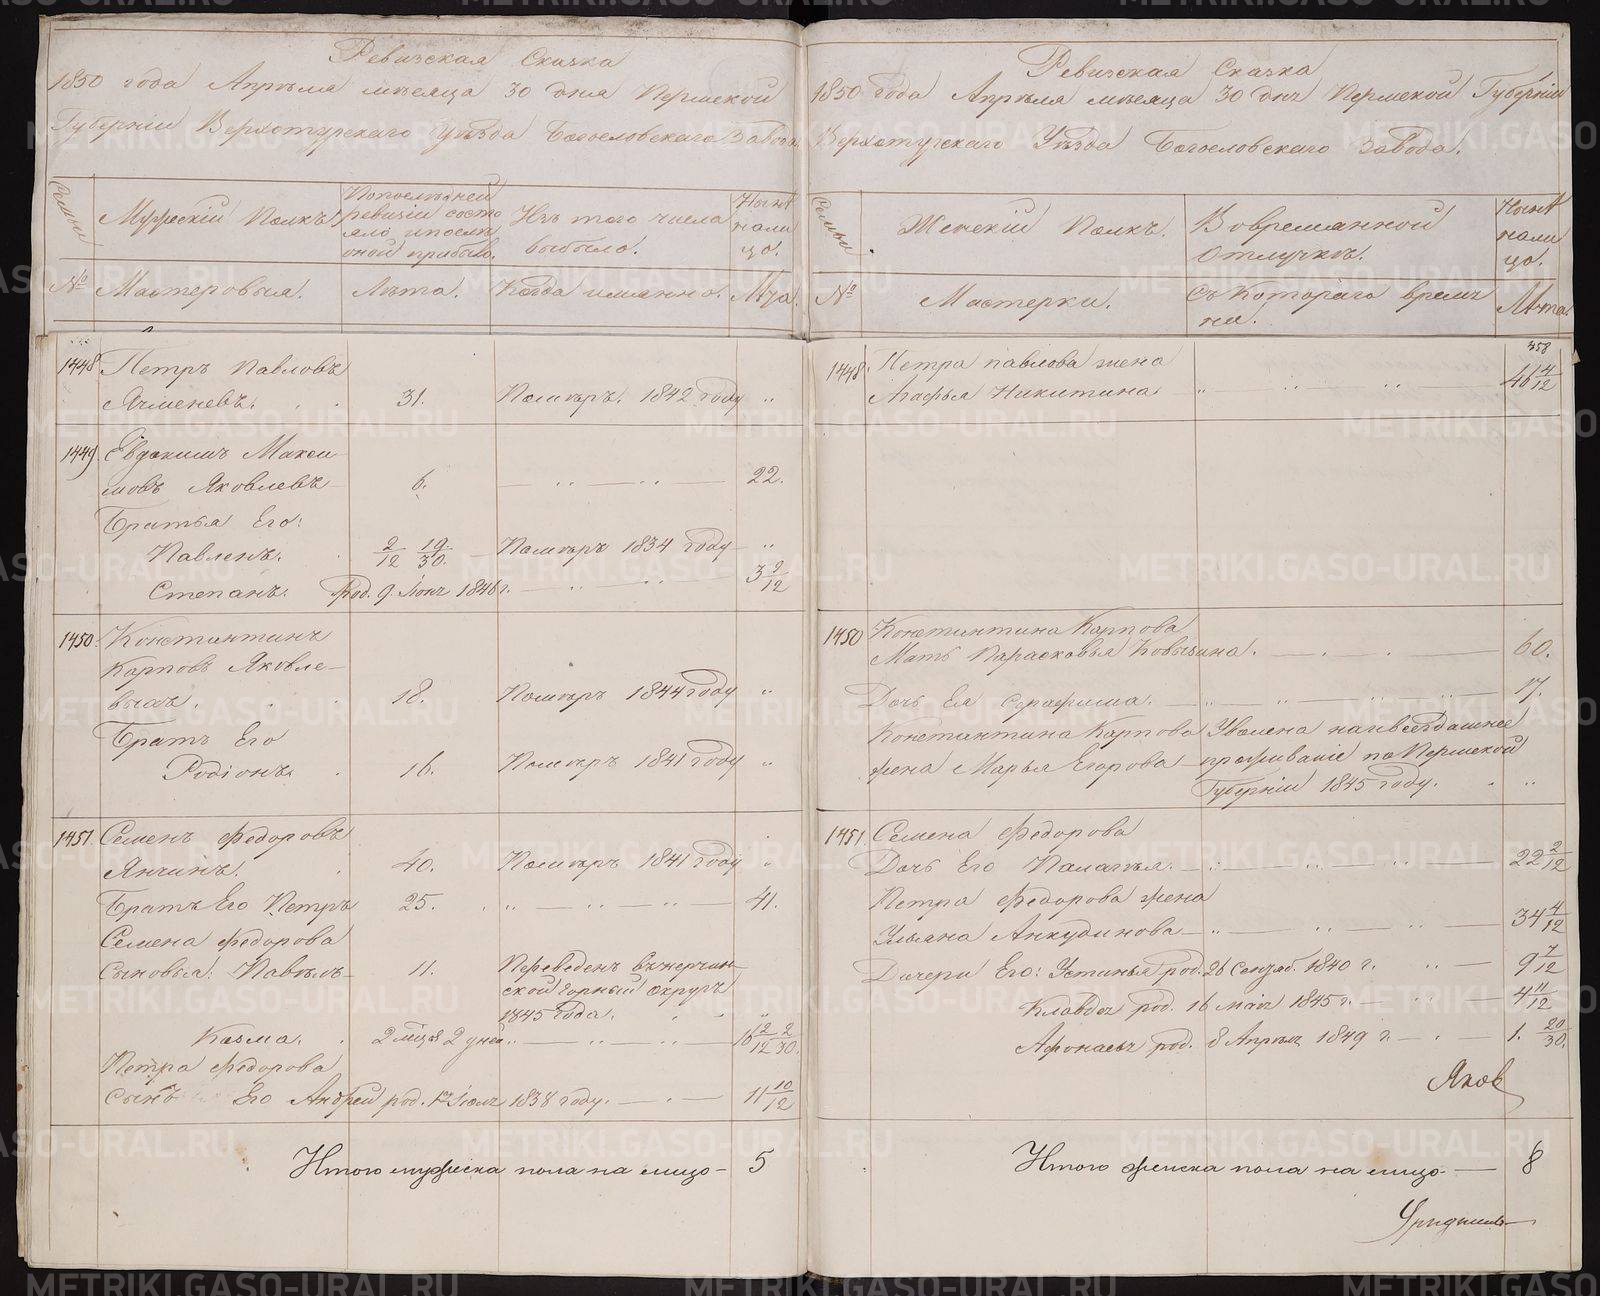 Ревизская Сказка
1850 года Апрѣля мѣсяца 30 дня Пермской
Губерніи Верхотурскаго Уѣзда Богословскаго Завода
Семьи
Мужескій Полъ.
По послѣдней
ревизіи состо
яло и после
оной прибыло.
Изъ того числа
выбыло.
Нынѣ
нали
цо.
№
Мастеровыя.
Лѣта.
Когда имянно.
Лѣта.
1448.
Петръ Павловъ
Ячменевъ.
31.
Помѣръ. 1842 году
"
1449.
Евдокимъ Макси
мовъ Яковлевъ
6.
22.
Братья Его:
Павленъ.
2/12 19/30.
Помѣръ 1834 году
"
Степанъ.
Род. 9. Іюня 1846 г.
3 9/12
1450.
Константинъ
Карповъ Яковле-
выхъ.
18.
Помѣръ 1844 году
"
Братъ Его
Родіонъ.
16.
Помѣръ 1841 году
"
1451
Семенъ Федоровъ
Янчинъ.
40.
Помѣръ 1841 году
"
Братъ Его Петръ
25.
41.
Семена Федорова
Сыновья: Павелъ
11.
Переведенъ въ нерчин-
ской горный округъ
1845 года.
"
Козма.
2 мѣс 2 дней
16 2/12 2/30.
Петра Федорова
Сынъ Его Андрей род. 1го Іюля 1838 году.
11 10/12
Итого мужеска пола на лицо - 5
Ревизская Сказка
1850 года Апрѣля мѣсяца 30 дня Пермской Губерніи
Верхотурскаго Уѣзда Богословскаго Завода.
Семьи
Женскій Полъ.
Во временной
отлучкѣ.
Нынѣ
нали
цо.
№
Мастерки.
Съ Котораго време
ни.
Лѣта.
458
1448.
Петра павлова жена
Агафья Никитина
46 4/12
1450
Константина Карпова
Мать Парасковья
60.
Дочь Ея Серафима.
17.
Константина Карпова
жена Марья Егорова
Уволена на всегдашнее
проживаніе по Пермской
Губерніи 1845 году.
"
1451
Семена Федорова
Дочь Его Палагея.
22 2/12
Петра Федорова жена
Ульяна Анкудинова
34 4/12
Дочери Его: Устинья род. 26 Сентяб. 1840 г.
9 7/12
Клавдія род. 16 мая 1845 г.
4 11/12
Афонасья род. 8 Апрѣля 1849 г.
1. 20/30.
Яков
Итого женска пола на лицо — 8
METRIKI.GASO-URAL.RU